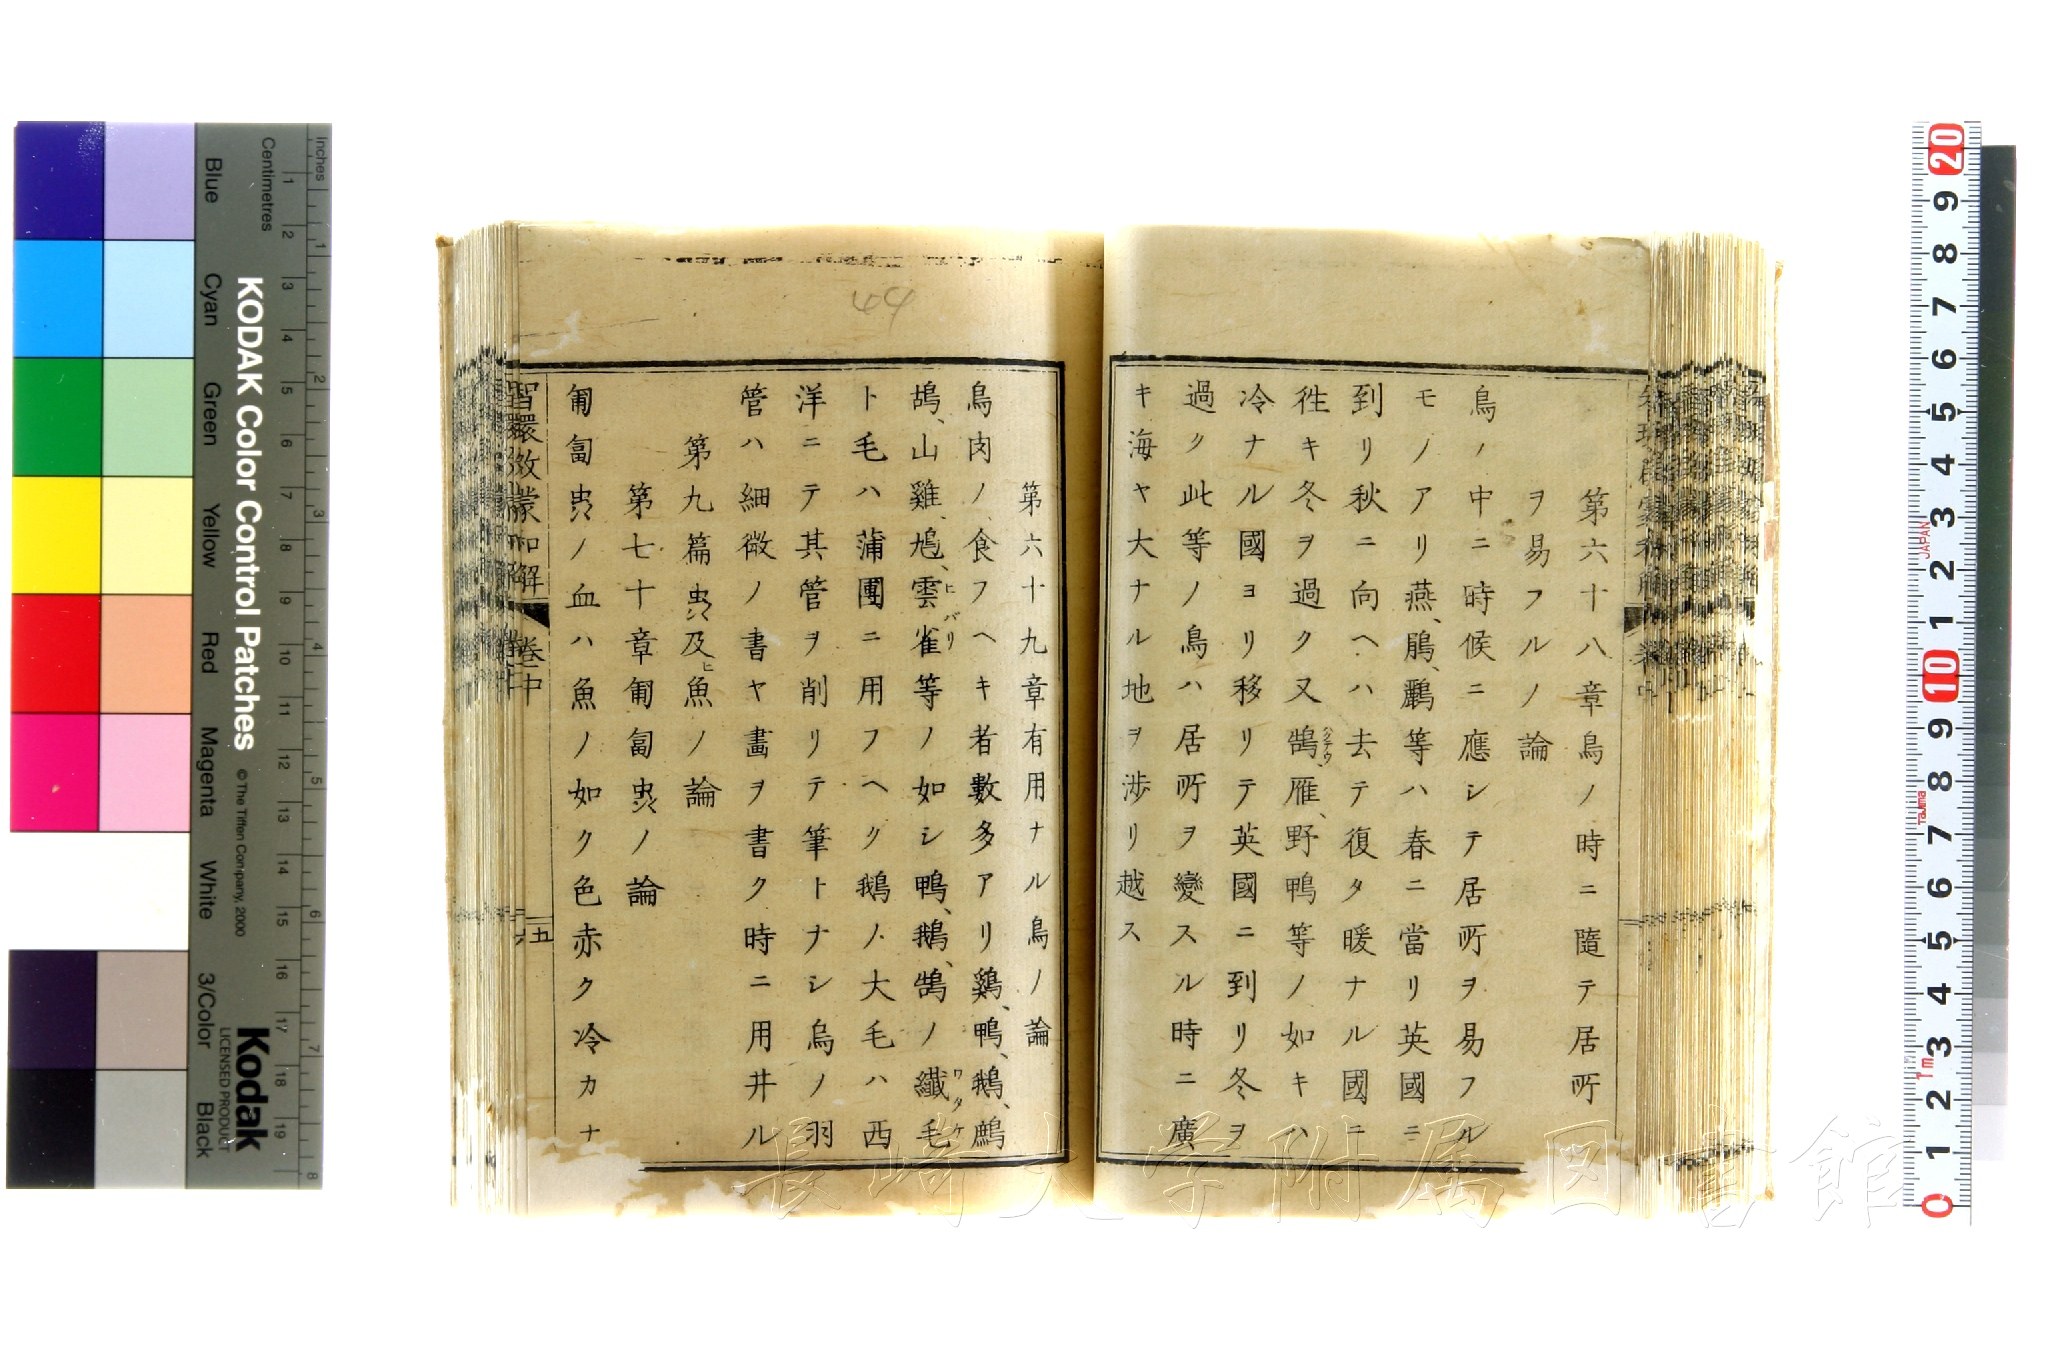 第六十八章鳥ノ時ニ隨テ居所
ヲ易フルノ論
鳥ノ中ニ時候ニ應シテ居所ヲ易フル
モノアリ燕、鵑、鸝等ハ春ニ當リ英國ニ
到リ秋ニ向ヘハ去テ復タ暖ナル國ニ
徃キ冬ヲ過ク又鵠雁、野鴨等ノ如キハ
冷ナル國ヨリ移リテ英國ニ到リ冬ヲ
過ク此等ノ鳥ハ居所ヲ變スル時ニ廣
キ海ヤ大ナル地ヲ渉リ越ス
第六十九章有用ナル鳥ノ論
鳥肉ノ食フヘキ者數多アリ鷄、鴨、鵝、鷓
鴣、山雞、鳩、雲雀等ノ如シ鴨、鵝、鵠ノ纖毛
ヒバリ
ワタケ
ト毛ハ蒲團ニ用フヘク鵝ノ大毛ハ西
洋ニテ其管ヲ削リテ筆トナシ烏ノ羽
管ハ細微ノ書ヤ畫ヲ書ク時ニ用井ル
第九篇虫及ヒ魚ノ論
第七十章匍匐虫ノ論
匍匐虫ノ血ハ魚ノ如ク色赤ク冷カナ
智環啟蒙和解
卷中
五
44
KODAK Color Control Patches
© The Tiffen Company, 2000
Kodak
LICENSED PRODUCT
Inches
Centimetres
Blue
Cyan
Green
Yellow
Red
Magenta
White
3/Color
Black
1 2 3 4 5 6 7 8 9 10 11 12 13 14 15 16 17 18 19
1 2 3 4 5 6 7 8
20 9 8 7 6 5 4 3 2 1 10 9 8 7 6 5 4 3 2 1 0
JAPAN
Tajima
1m
長崎大学附属図書館